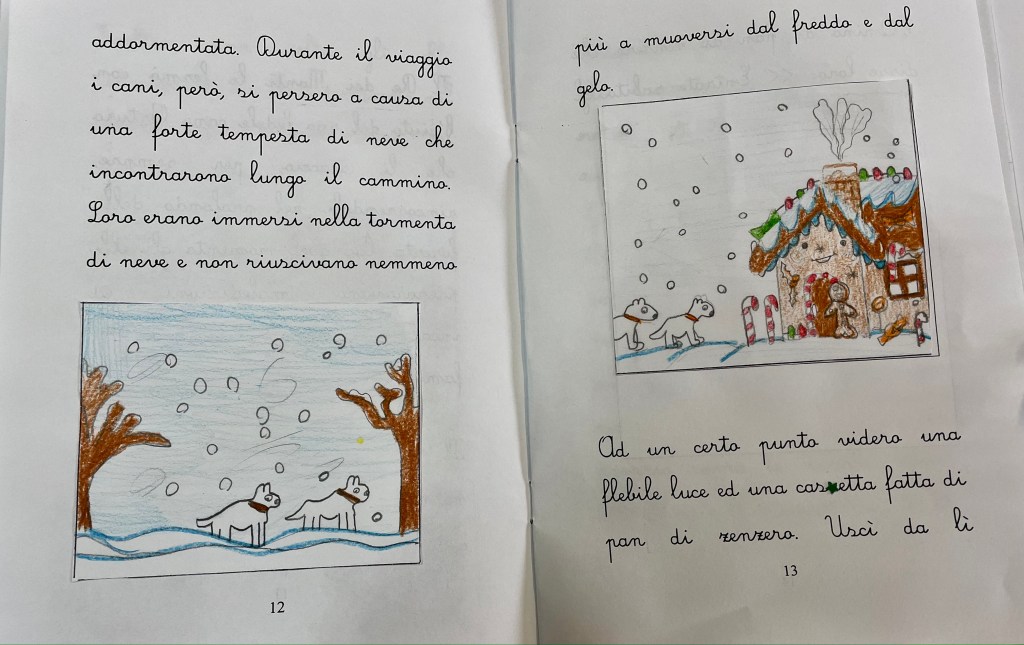 addormentata. Durante il viaggio
i cani, però, si persero a causa di
una forte tempesta di neve che
incontrarono lungo il cammino.
Loro erano immersi nella tormenta
di neve e non riuscivano nemmeno
12
più a muoversi dal freddo e dal
gelo.
Ad un certo punto videro una
flebile luce ed una casetta fatta di
pan di zenzero. Uscì da lì
13